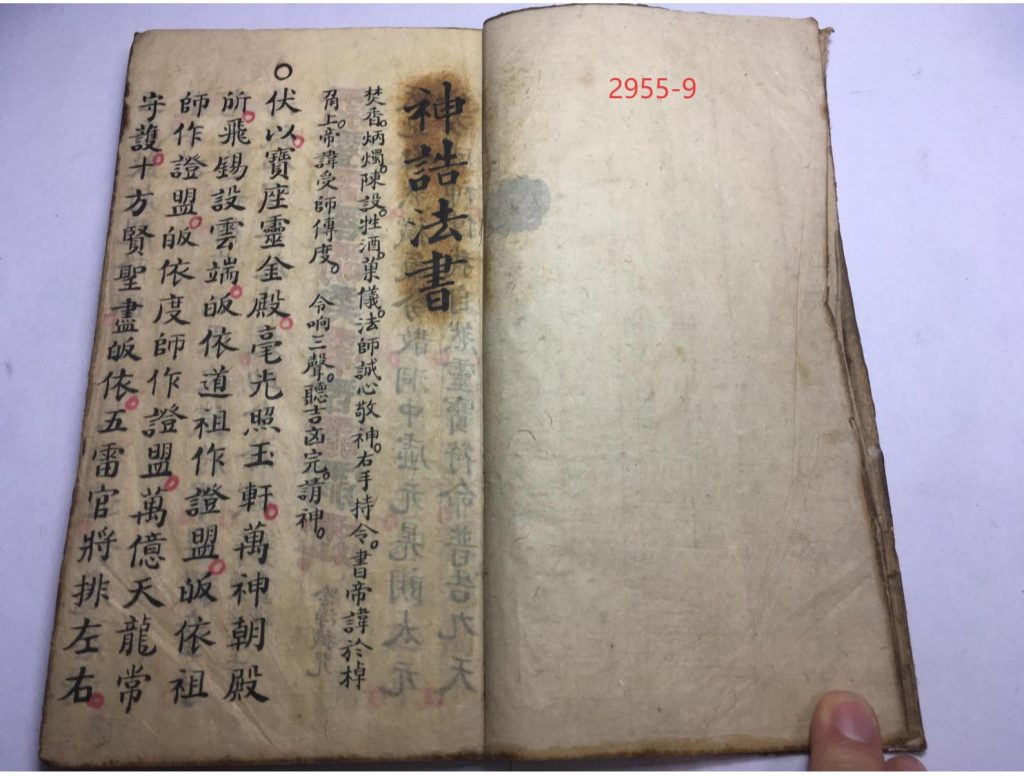 2955-9
神誥法書
焚香。炳燭。陳設。牲酒。菓儀。法師誠心敬神。右手持令。書帝諱於棹
角上。帝諱受師傳度。令响三聲。聽吉㐫完。請神。
○伏以寶座靈金殿。毫光照玉軒。萬神朝殿
所。飛錫設雲端。皈依道祖作證盟。皈依祖
師作證盟。皈依度師作證盟。萬億天龍常
守護。十方賢聖盡皈依。五雷官將排左右。